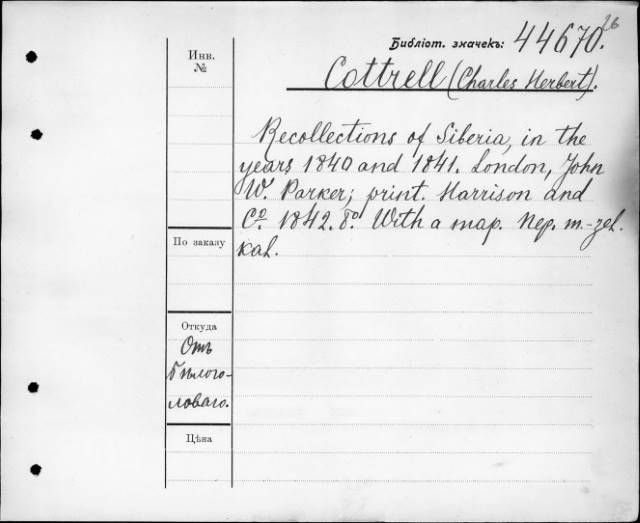 26
Библіот. значекъ: 44670.
Инв.
№
Cottrell (Charles Herbert).
Recollections of Siberia, in the
years 1840 and 1841. London, John
W. Parker; print. Harrison and
Cº. 1842. 8º. With a map. Пер. т.-зел.
кал.
По заказу
Откуда
Отъ
Бѣлого-
ловаго.
Цѣна